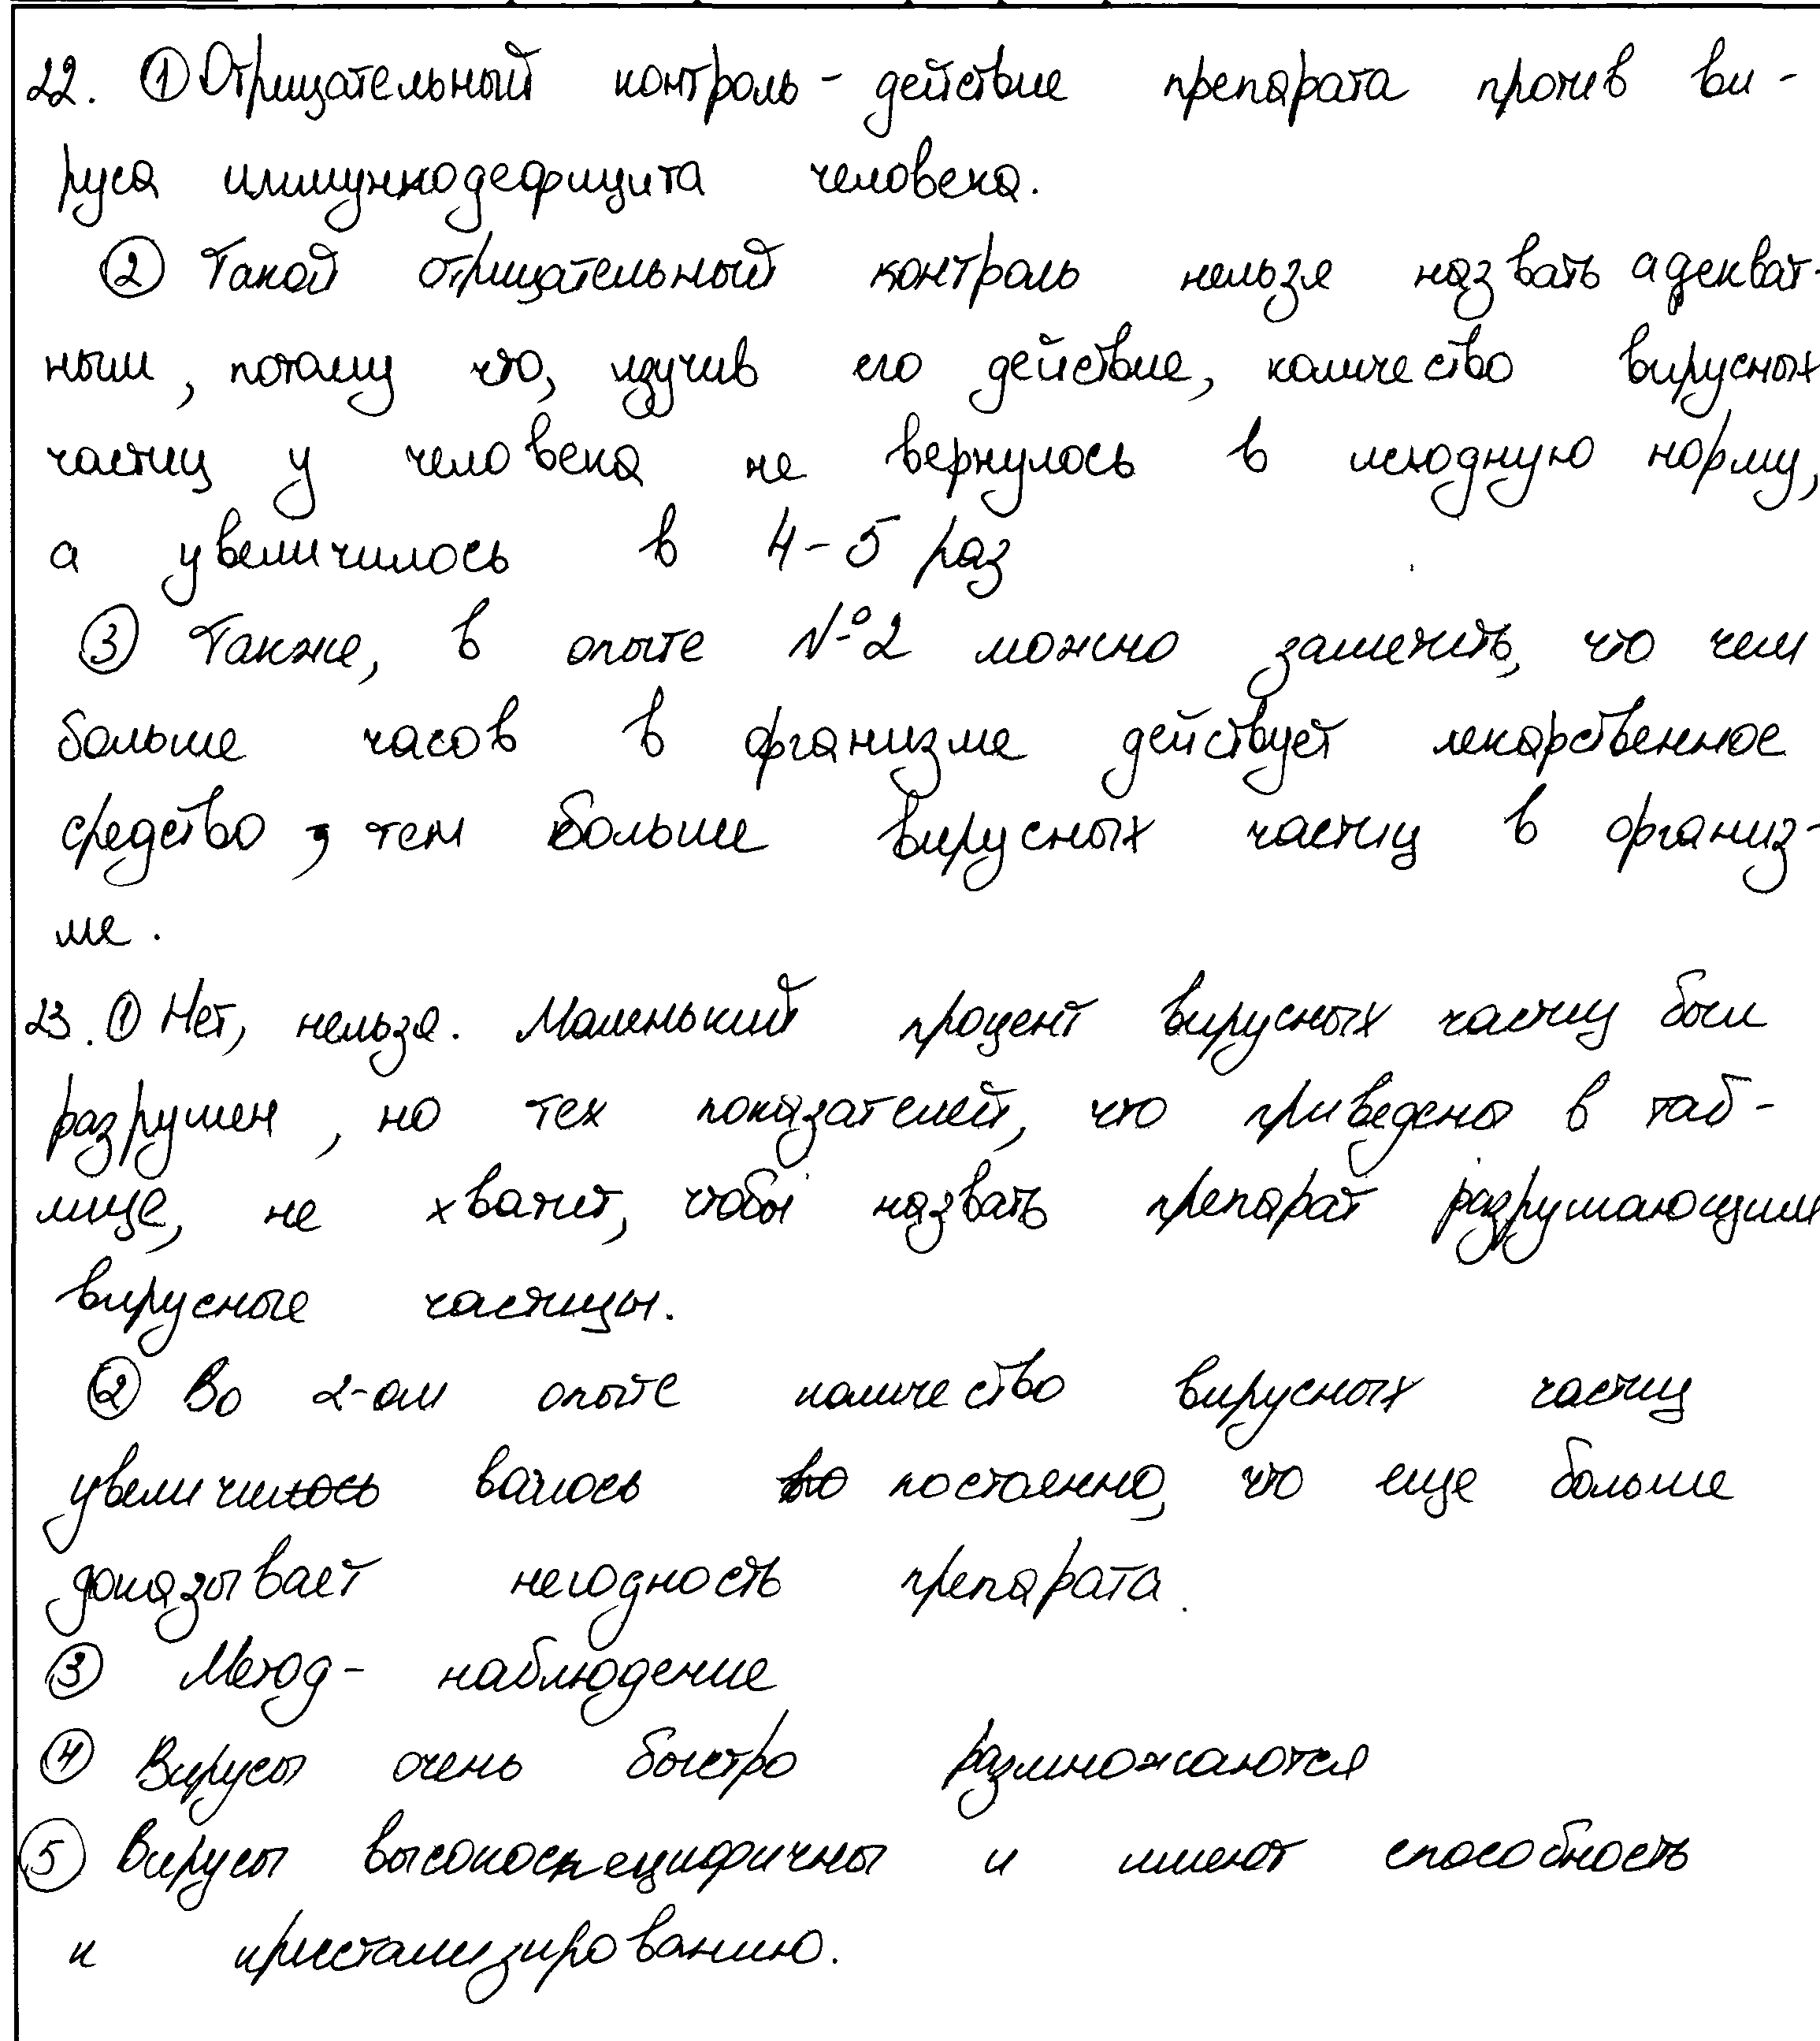 22. ① Отрицательный контроль - действие препарата против ви-
руса иммуннодефицита человека.
② Такой отрицательный контроль нельзя назвать адекват-
ным, потому что, изучив его действие, количество вирусных
частиц у человека не вернулось в исходную норму,
а увеличилось в 4-5 раз
③ Также, в опыте №2 можно заметить, что чем
больше часов в организме действует лекарственное
средство, тем больше вирусных частиц в организ-
ме.
23. ① Нет, нельзя. Маленький процент вирусных частиц был
разрушен, но тех показателей, что приведены в таб-
лице, не хватит, чтобы назвать препарат разрушающим
вирусные частицы.
② Во 2-ом опыте количество вирусных частиц
увеличилось валось во постоянно, что еще больше
доказывает негодность препарата.
③ Метод - наблюдение
④ Вирусы очень быстро размножаются
⑤ Вирусы высокоспецифичны и имеют способность
к кристализированию.